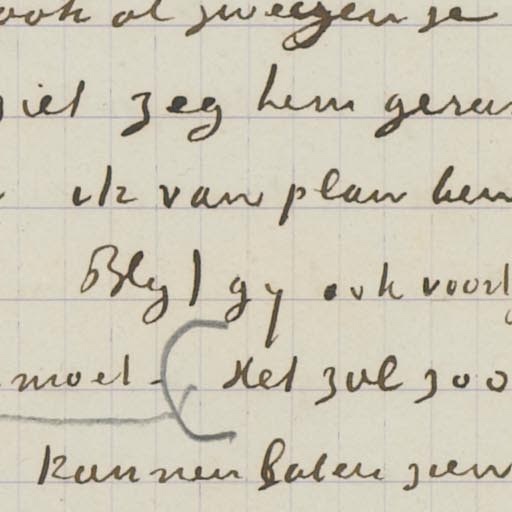 ook al zwegen ze
ziet zeg hem gerus
ik van plan ben
Blyf gy ook voort
moet - Het zal zoo
kunnen laten zien